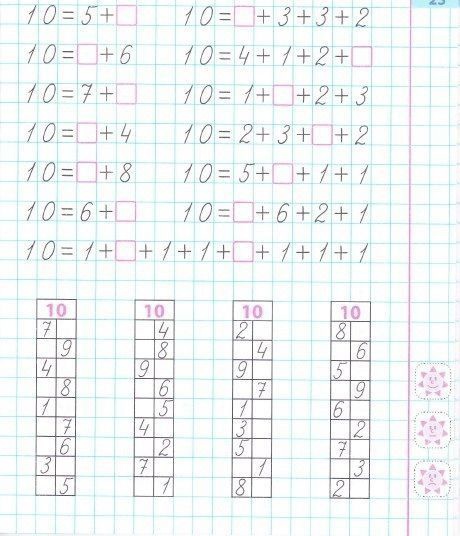 23
10=5+□ 10=□+3+3+2
10=□+6 10=4+1+2+□
10=7+□ 10=1+□+2+3
10=□+4 10=2+3+□+2
10=□+8 10=5+□+1+1
10=6+□ 10=□+6+2+1
10=1+□+1+1+□+1+1+1
10 10 10 10
7 4 2 8
9 8 4 6
4 9 9 5
8 6 7 9
1 5 1 6
7 4 3 2
6 2 5 7
3 7 1 3
5 1 8 2